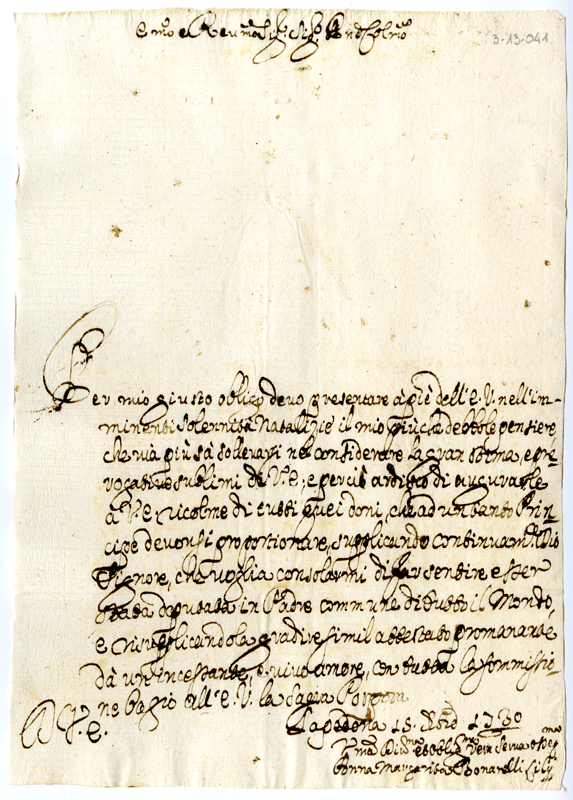 Emo e Reumo Sig:r Sig:r Pnd Colmo
3-13-041
Per mio giusto obligo devo presentare à piè dell'E.V. nell'im-
minenti solennità Natalizie il mio più che debbole pensiere
che và più sù sollevasi nel considerare la gran stima, e pre-
rogative sublimi di V.E.; e perciò ardisco di augurarle
à V.E. ricolme di tutti quei doni, che ad un tanto Prin-
cipe devonsi proportionare, supplicando continuam:te Dio
Signore, che voglia consolarmi di far sentire esser
stata deputata in Padre commune di tutto il Mondo,
e risupplicandola gradire simil attestato promanante
dà un'incessante, e vivo amore, con tutta la sommissio-
ne bagio all'E.V. la Sacra Porpora
D. V. E.
15. 1730
Donna Margarita Bonarelli